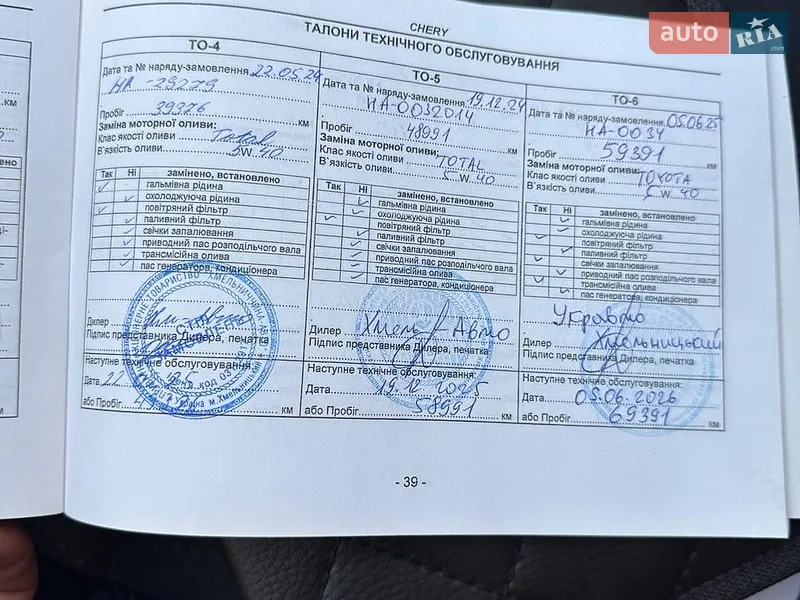 auto RIA .com
CHERY
ТАЛОНИ ТЕХНІЧНОГО ОБСЛУГОВУВАННЯ
ТО-4
Дата та № наряду-замовлення 22.05.24
НА-29279
Пробіг 39376 км
Заміна моторної оливи:
Клас якості оливи Total
В`язкість оливи 5W40
Так Ні замінено, встановлено
гальмівна рідина
охолоджуюча рідина
повітряний фільтр
паливний фільтр
свічки запалювання
приводний пас розподільчого вала
трансмісійна олива
пас генератора, кондиціонера
Дилер
Підпис представника Дилера, печатка
Наступне технічне обслуговування:
Дата 22
або Пробіг км
ТО-5
Дата та № наряду-замовлення 19.12.24
НА-0032014
Пробіг 48991 км
Заміна моторної оливи:
Клас якості оливи TOTAL
В`язкість оливи 5W40
Так Ні замінено, встановлено
гальмівна рідина
охолоджуюча рідина
повітряний фільтр
паливний фільтр
свічки запалювання
приводний пас розподільчого вала
трансмісійна олива
пас генератора, кондиціонера
Дилер Хмель Авто
Підпис представника Дилера, печатка
Наступне технічне обслуговування:
Дата 19.12.2025
або Пробіг 58991 км
ТО-6
Дата та № наряду-замовлення 05.06.25
НА-0034
Пробіг 59391 км
Заміна моторної оливи:
Клас якості оливи TOYOTA
В`язкість оливи 5W40
Так Ні замінено, встановлено
гальмівна рідина
охолоджуюча рідина
повітряний фільтр
паливний фільтр
свічки запалювання
приводний пас розподільчого вала
трансмісійна олива
пас генератора, кондиціонера
Укравто
Дилер Хмельницький
Підпис представника Дилера, печатка
Наступне технічне обслуговування:
Дата 05.06.2026
або Пробіг 69391 км
- 39 -